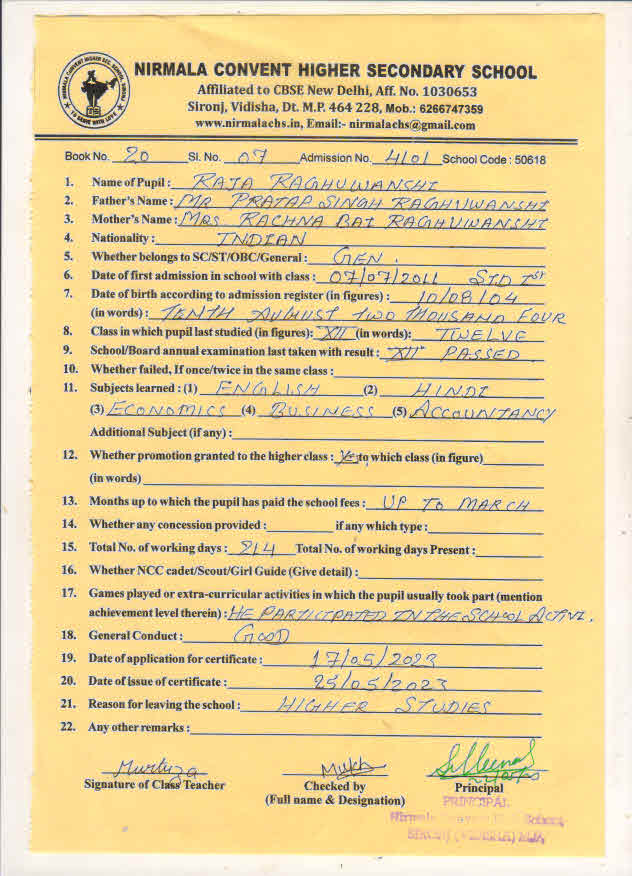 NIRMALA CONVENT HIGHER SECONDARY SCHOOL
Affiliated to CBSE New Delhi, Aff. No. 1030653
Sironj, Vidisha, Dt. M.P. 464 228, Mob.: 6266747359
www.nirmalachs.in, Email:- nirmalachs@gmail.com
Book No. 20 Sl. No. 07 Admission No. 4101 School Code : 50618
1. Name of Pupil : RAJA RAGHUWANSHI
2. Father's Name : MR PRATAP SINGH RAGHUWANSHI
3. Mother's Name : MRS RACHNA BAI RAGHUWANSHI
4. Nationality : INDIAN
5. Whether belongs to SC/ST/OBC/General : GEN.
6. Date of first admission in school with class : 07/07/2011 STD Ist
7. Date of birth according to admission register (in figures) : 10/08/04
(in words) : TENTH AUGUST TWO THOUSAND FOUR
8. Class in which pupil last studied (in figures): XII (in words): TWELVE
9. School/Board annual examination last taken with result : XIIth PASSED
10. Whether failed, If once/twice in the same class :
11. Subjects learned : (1) ENGLISH (2) HINDI
(3) ECONOMICS (4) BUSINESS (5) ACCOUNTANCY
Additional Subject (if any) :
12. Whether promotion granted to the higher class : Yes to which class (in figure)
(in words)
13. Months up to which the pupil has paid the school fees : UP TO MARCH
14. Whether any concession provided : if any which type :
15. Total No. of working days : 214 Total No. of working days Present :
16. Whether NCC cadet/Scout/Girl Guide (Give detail) :
17. Games played or extra-curricular activities in which the pupil usually took part (mention
achievement level therein) : HE PARTICIPATED IN THE SCHOOL ACTIVI.
18. General Conduct : GOOD
19. Date of application for certificate : 17/05/2023
20. Date of issue of certificate : 25/05/2023
21. Reason for leaving the school : HIGHER STUDIES
22. Any other remarks :
Murtuza
Signature of Class Teacher Checked by Principal
(Full name & Designation)
PRINCIPAL